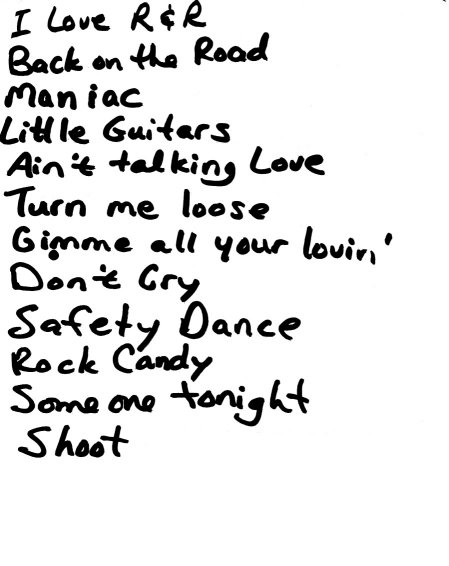 I Love R & R
Back on the Road
Maniac
Little Guitars
Ain't talking Love
Turn me loose
Gimme all your lovin'
Don't Cry
Safety Dance
Rock Candy
Someone tonight
Shoot